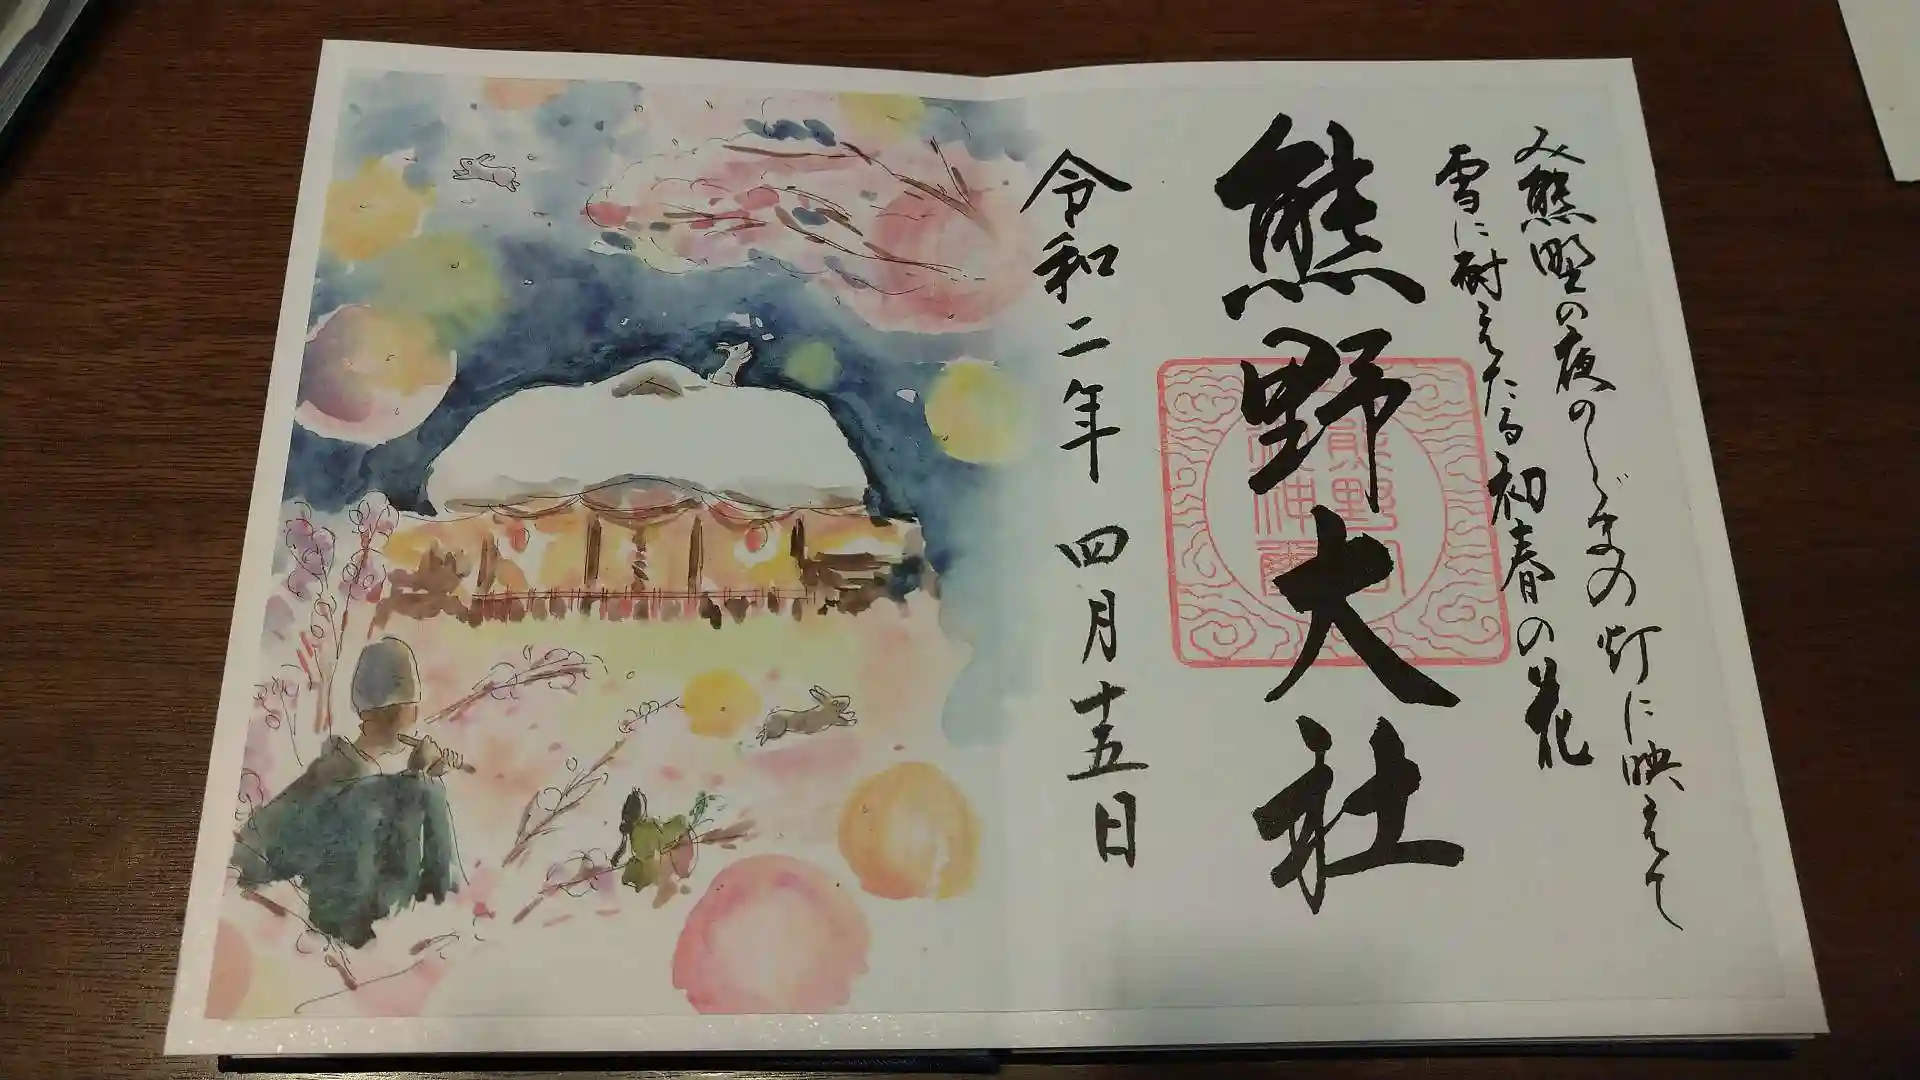 み熊野の夜のしゞまの灯に映えて
雪に耐えたる初春の花
熊野大社
令和二年 四月十五日